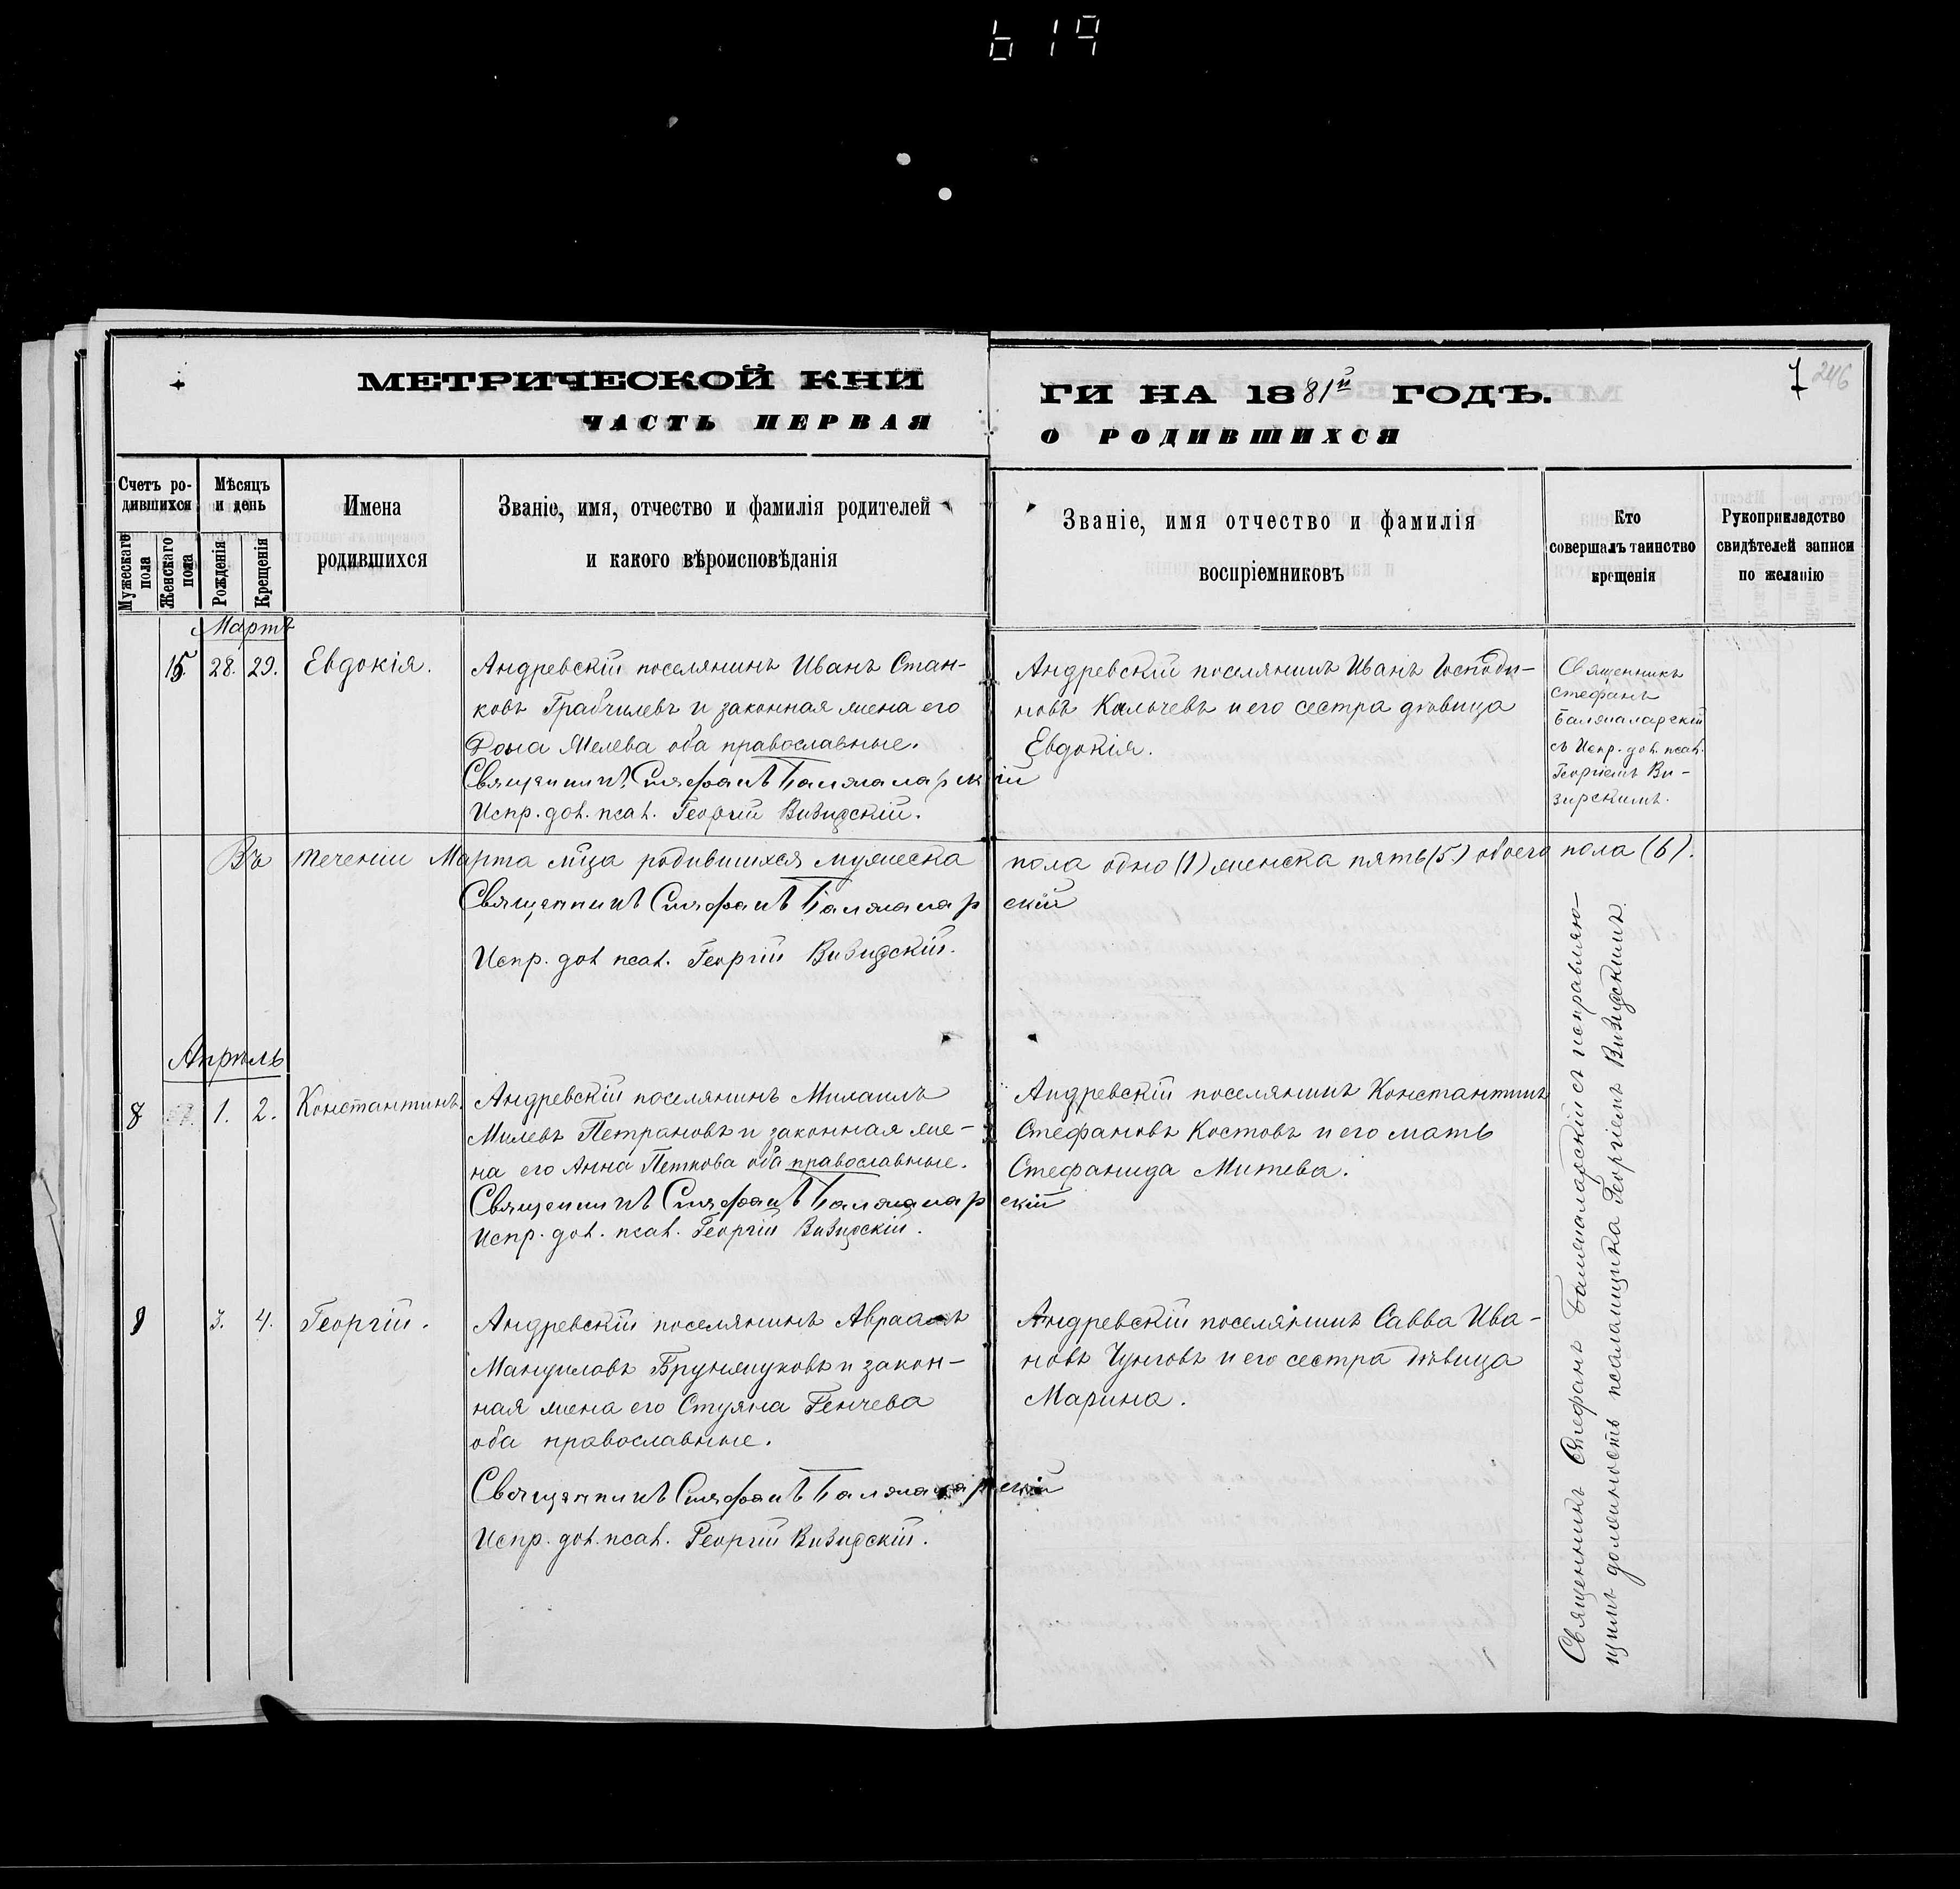 619
МЕТРИЧЕСКОЙ КНИ
ЧАСТЬ ПЕРВАЯ
ГИ НА 1881й ГОДЪ.
О РОДИВШИХСЯ
7 246
Счетъ ро-
дившихся
Мужескаго
пола
Женскаго
пола
Мѣсяцъ
и день
Рожденія
Крещенія
Имена
родившихся
Званіе, имя, отчество и фамилія родителей
и какого вѣроисповѣданія
Званіе, имя отчество и фамилія
воспріемниковъ
Кто
совершалъ таинство
крещенія
Рукоприкладство
свидѣтелей записи
по желанію
Мартъ
15. 28. 29. Евдокія.
Андревскій поселянинъ Иванъ Стан-
ковъ Грабчилевъ и законная жена его
Мелева оба православные.
Священникъ Стефанъ Балжаларскій
Испр. дол. псал. Георгій
Андревскій поселянинъ Иванъ Господи-
новъ Калчевъ и его сестра дѣвица
Евдокія.
Священникъ
Стефанъ
Балжаларскій
съ Испр. дол. псал.
Георгіемъ Ви-
зирскимъ.
Въ теченіи Марта мца родившихся мужеска пола одно (1) женска пять (5) обоего пола (6).
Священникъ Стефанъ Балжаларскій
Испр. дол псал. Георгій
Апрѣль
8 1. 2. Константинъ.
Андревскій поселянинъ Михаилъ
Милевъ Петрановъ и законная же-
на его Анна Петкова оба православные.
Священникъ Стефанъ Балжаларскій
Испр. дол. псал. Георгій
Андревскій поселянинъ Константинъ
Стефановъ Костовъ и его мать
Стефанида Митева.
9 3. 4. Георгій.
Андревскій поселянинъ Авраамъ
Мануиловъ и закон-
ная жена его Стуяна Генчева
оба православные.
Священникъ Стефанъ Балжаларскій
Испр. дол. псал. Георгій
Андревскій поселянинъ Савва Ива-
новъ Чунговъ и его сестра дѣвица
Марина.
Священникъ Стефанъ Балжаларскій съ исправляю-
щимъ должность псаломщика Георгіемъ